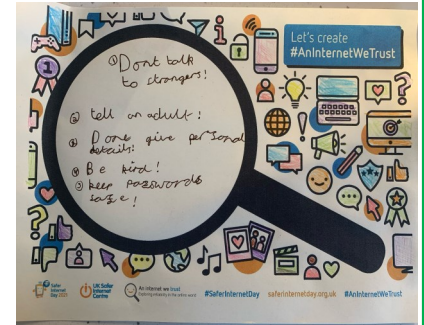 Let's create
#AnInternetWeTrust
① Dont talk
to strangers!
② tell an adult!
③ Dont give personal
details!
④ Be kind!
⑤ keep passwords
safe!
Safer
Internet
Day 2021
UK Safer
Internet
Centre
An internet we trust
Exploring reliability in the online world
#SaferInternetDay
saferinternetday.org.uk
#AnInternetWeTrust